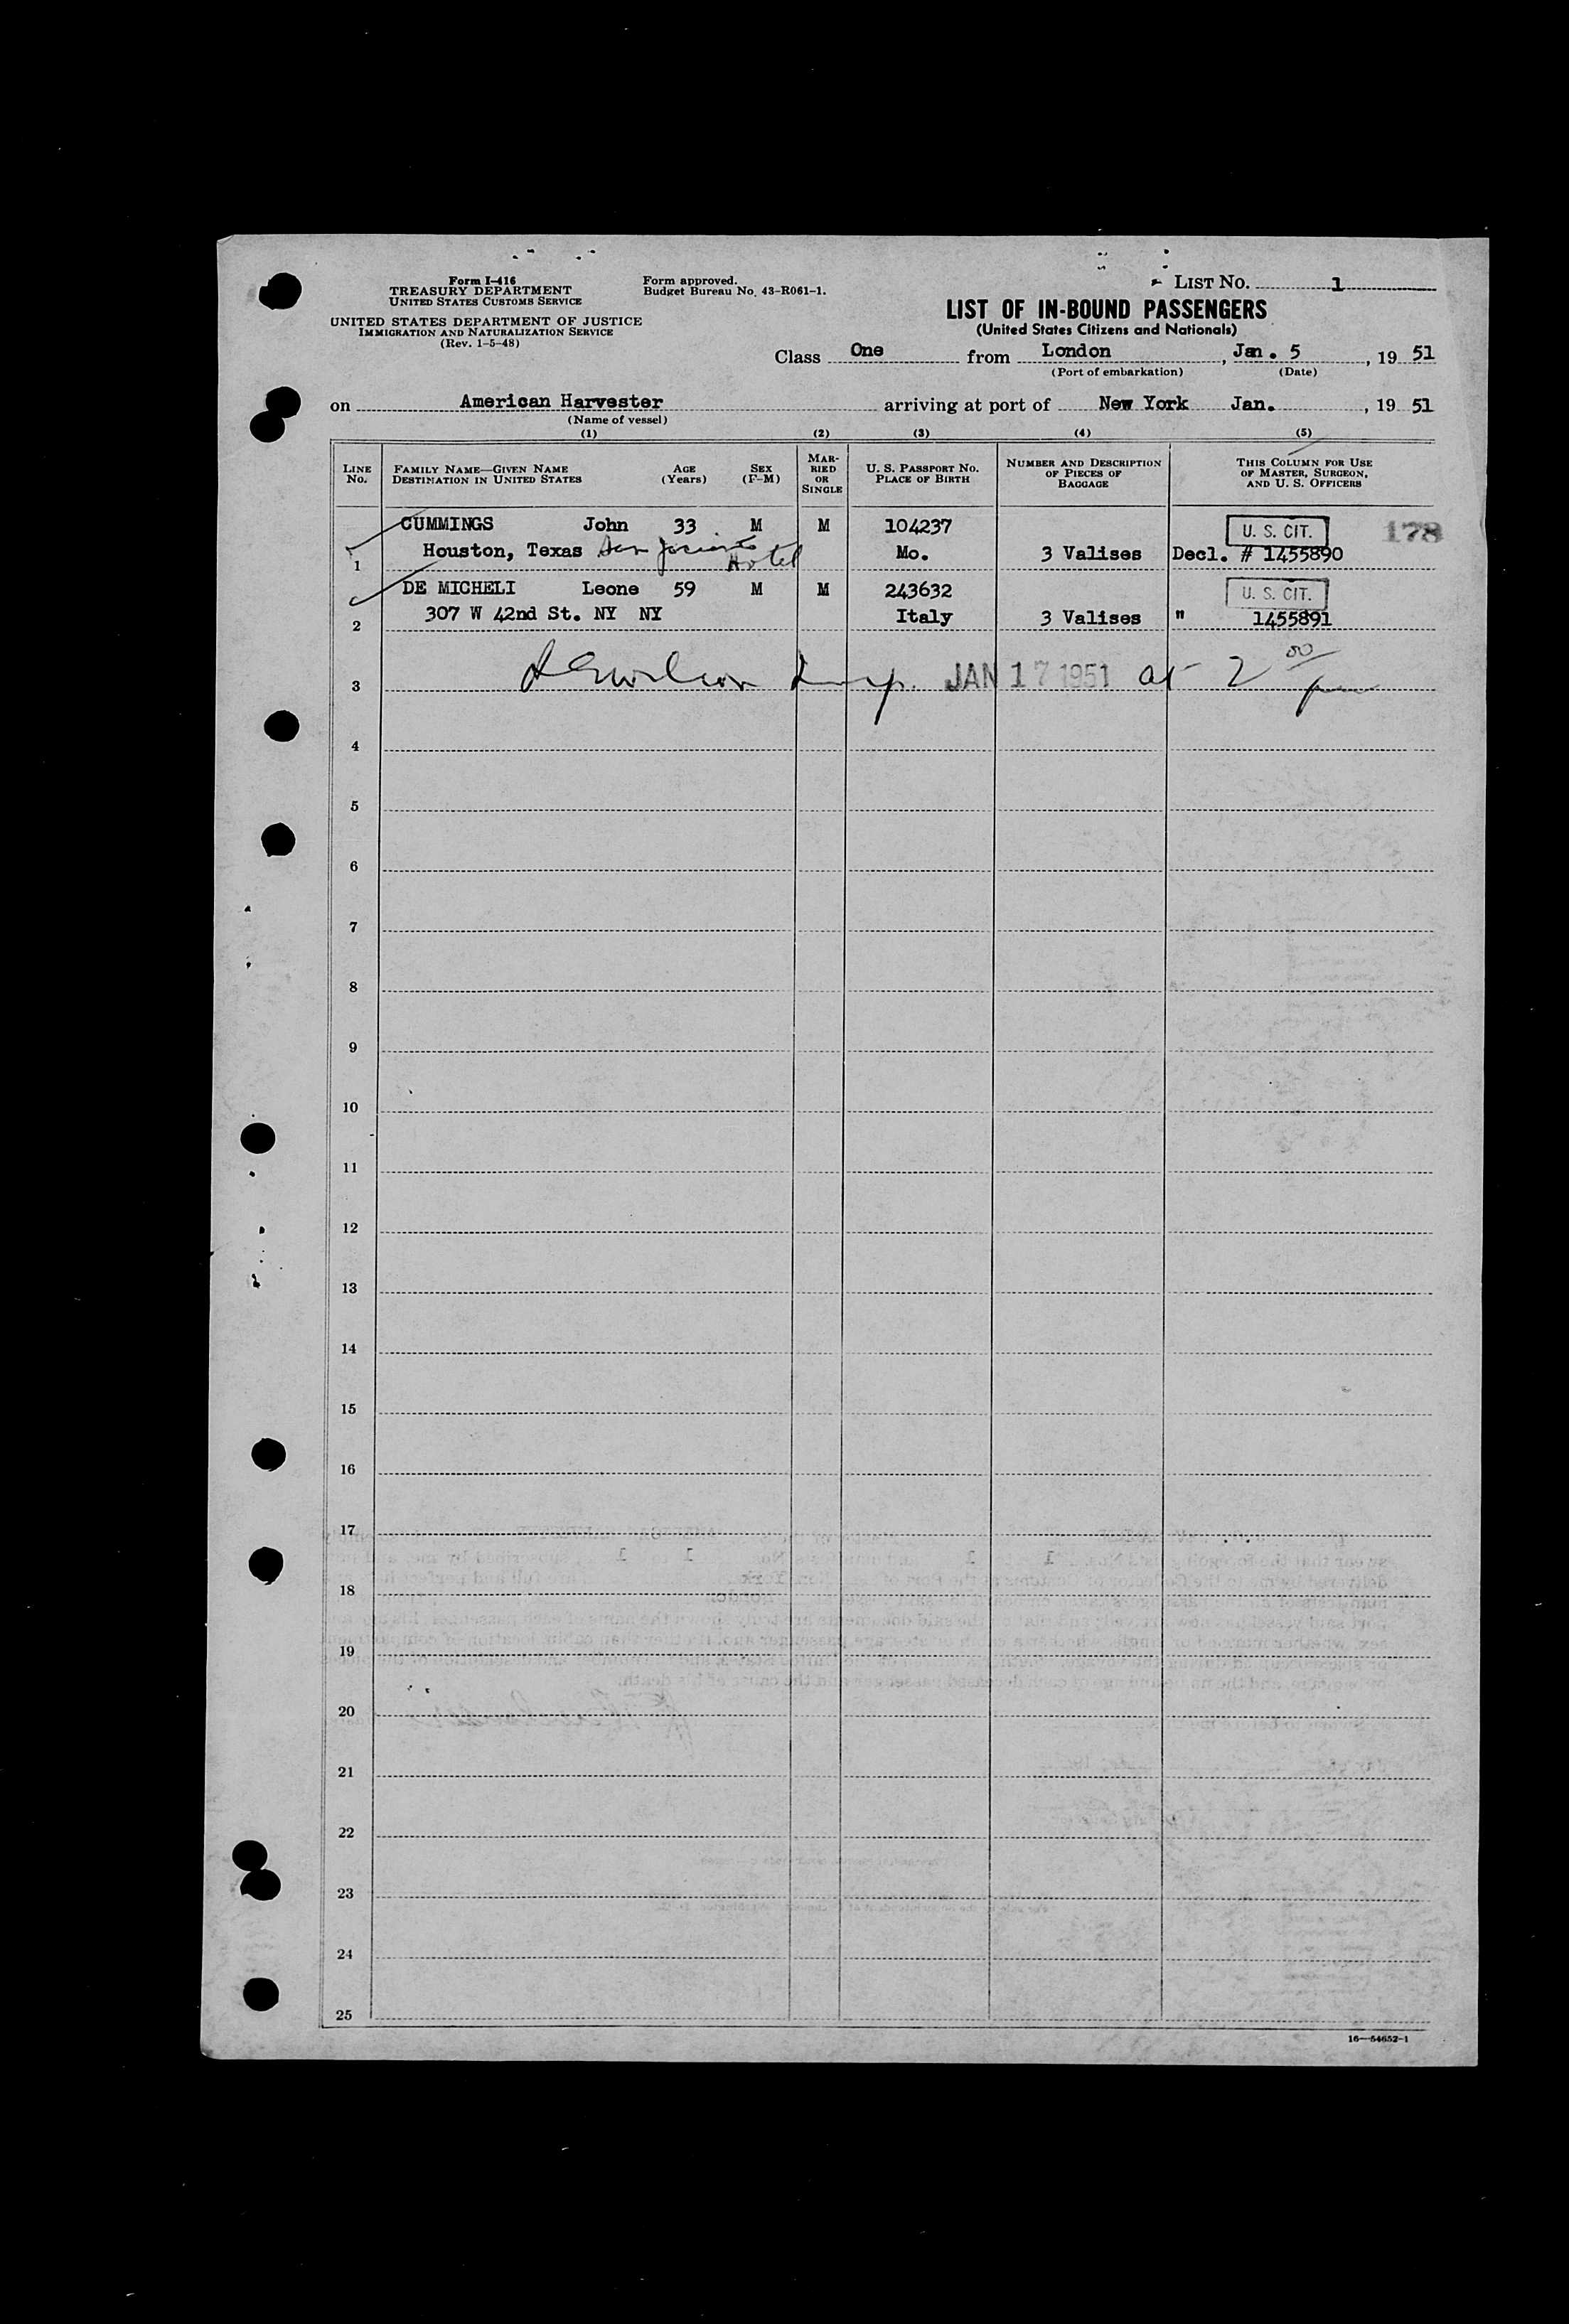 Form I-416
TREASURY DEPARTMENT
UNITED STATES CUSTOMS SERVICE
UNITED STATES DEPARTMENT OF JUSTICE
IMMIGRATION AND NATURALIZATION SERVICE
(Rev. 1-5-48)
Form approved.
Budget Bureau No. 43-R061-1.
LIST NO. 1
LIST OF IN-BOUND PASSENGERS
(United States Citizens and Nationals)
Class One from London, Jan. 5, 19 51
(Port of embarkation) (Date)
on American Harvester arriving at port of New York Jan., 19 51
(Name of vessel)
(1) (2) (3) (4) (5)
LINE NO. FAMILY NAME—GIVEN NAME DESTINATION IN UNITED STATES AGE (Years) SEX (F-M) MARRIED OR SINGLE U. S. PASSPORT NO. PLACE OF BIRTH NUMBER AND DESCRIPTION OF PIECES OF BAGGAGE THIS COLUMN FOR USE OF MASTER, SURGEON, AND U. S. OFFICERS
CUMMINGS John 33 M M 104237 U. S. CIT. 178
1 Houston, Texas San Jacinto Hotel Mo. 3 Valises Decl. # 1455890
DE MICHELI Leone 59 M M 243632 U. S. CIT.
2 307 W 42nd St. NY NY Italy 3 Valises " 1455891
3 Insp. JAN 17 1951 at 2 00 pm
4
5
6
7
8
9
10
11
12
13
14
15
16
17
18
19
20
21
22
23
24
25
16—54652-1